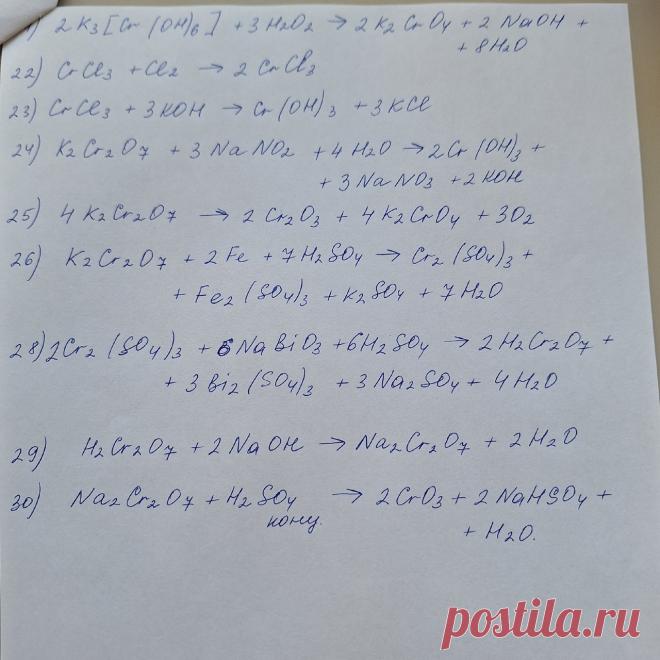 1) 2 K3 [Cr (OH)6] + 3 H2O2 → 2 K2 CrO4 + 2 NaOH +
+ 8H2O
22) CrCl3 + Cl2 → 2 CrCl3
23) CrCl3 + 3 KOH → Cr (OH)3 + 3 KCl
24) K2Cr2O7 + 3 NaNO2 + 4 H2O → 2 Cr (OH)3 +
+ 3 NaNO3 + 2 KOH
25) 4 K2Cr2O7 → 2 Cr2O3 + 4 K2CrO4 + 3O2
26) K2Cr2O7 + 2 Fe + 7 H2SO4 → Cr2 (SO4)3 +
+ Fe2 (SO4)3 + K2SO4 + 7 H2O
28) 2Cr2 (SO4)3 + 6 NaBiO3 + 6H2SO4 → 2 H2Cr2O7 +
+ 3 Bi2 (SO4)3 + 3 Na2SO4 + 4 H2O
29) H2Cr2O7 + 2 NaOH → Na2Cr2O7 + 2 H2O
30) Na2Cr2O7 + H2SO4 → 2 CrO3 + 2 NaHSO4 +
конц.
+ H2O.
postila.ru